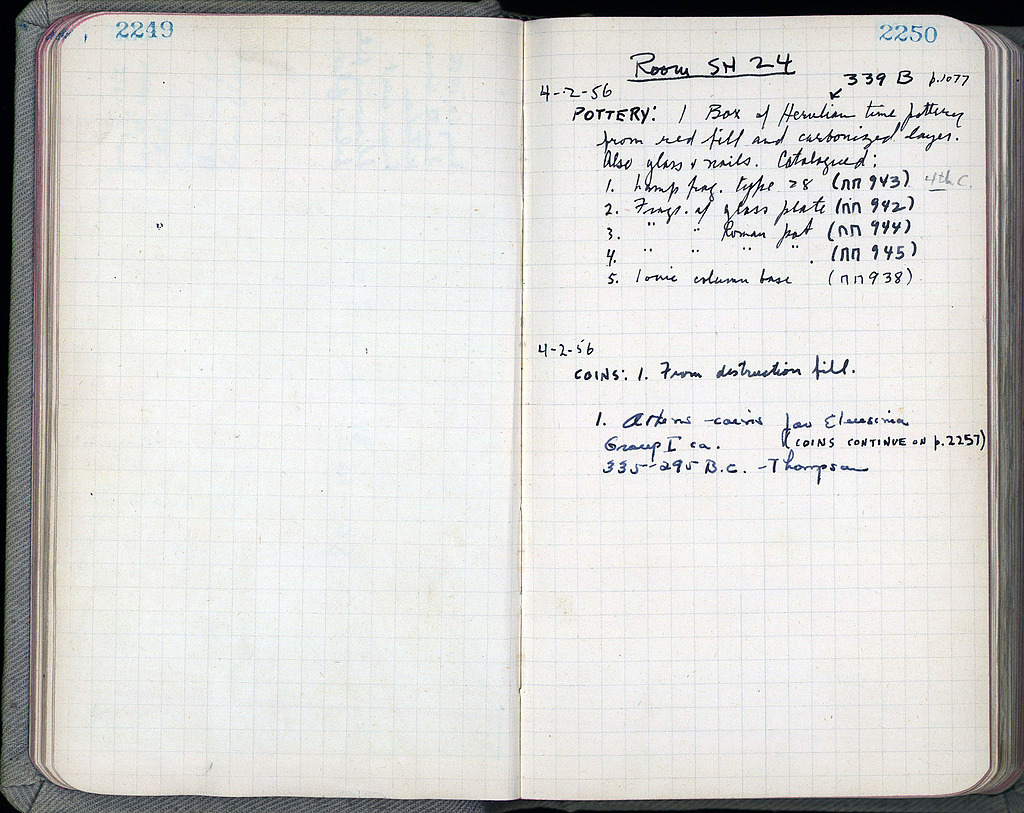 2249
2250
Room SH 24
339 B p.1077
4-2-56
POTTERY: 1 Box of Herulian time pottery
from red fill and carbonized layer.
Also glass & nails. Catalogued:
1. Lamp frag. type 28 (ΠΠ 943) 4th C.
2. Frags. of glass plate (ΠΠ 942)
3. " " Roman pot (ΠΠ 944)
4. " " " " . (ΠΠ 945)
5. Ionic column base (ΠΠ 938)
4-2-56
COINS: 1. From destruction fill.
1. Athens - coins for Eleusinia
Group I ca. (COINS CONTINUE ON p.2257)
335-295 B.C. - Thompson